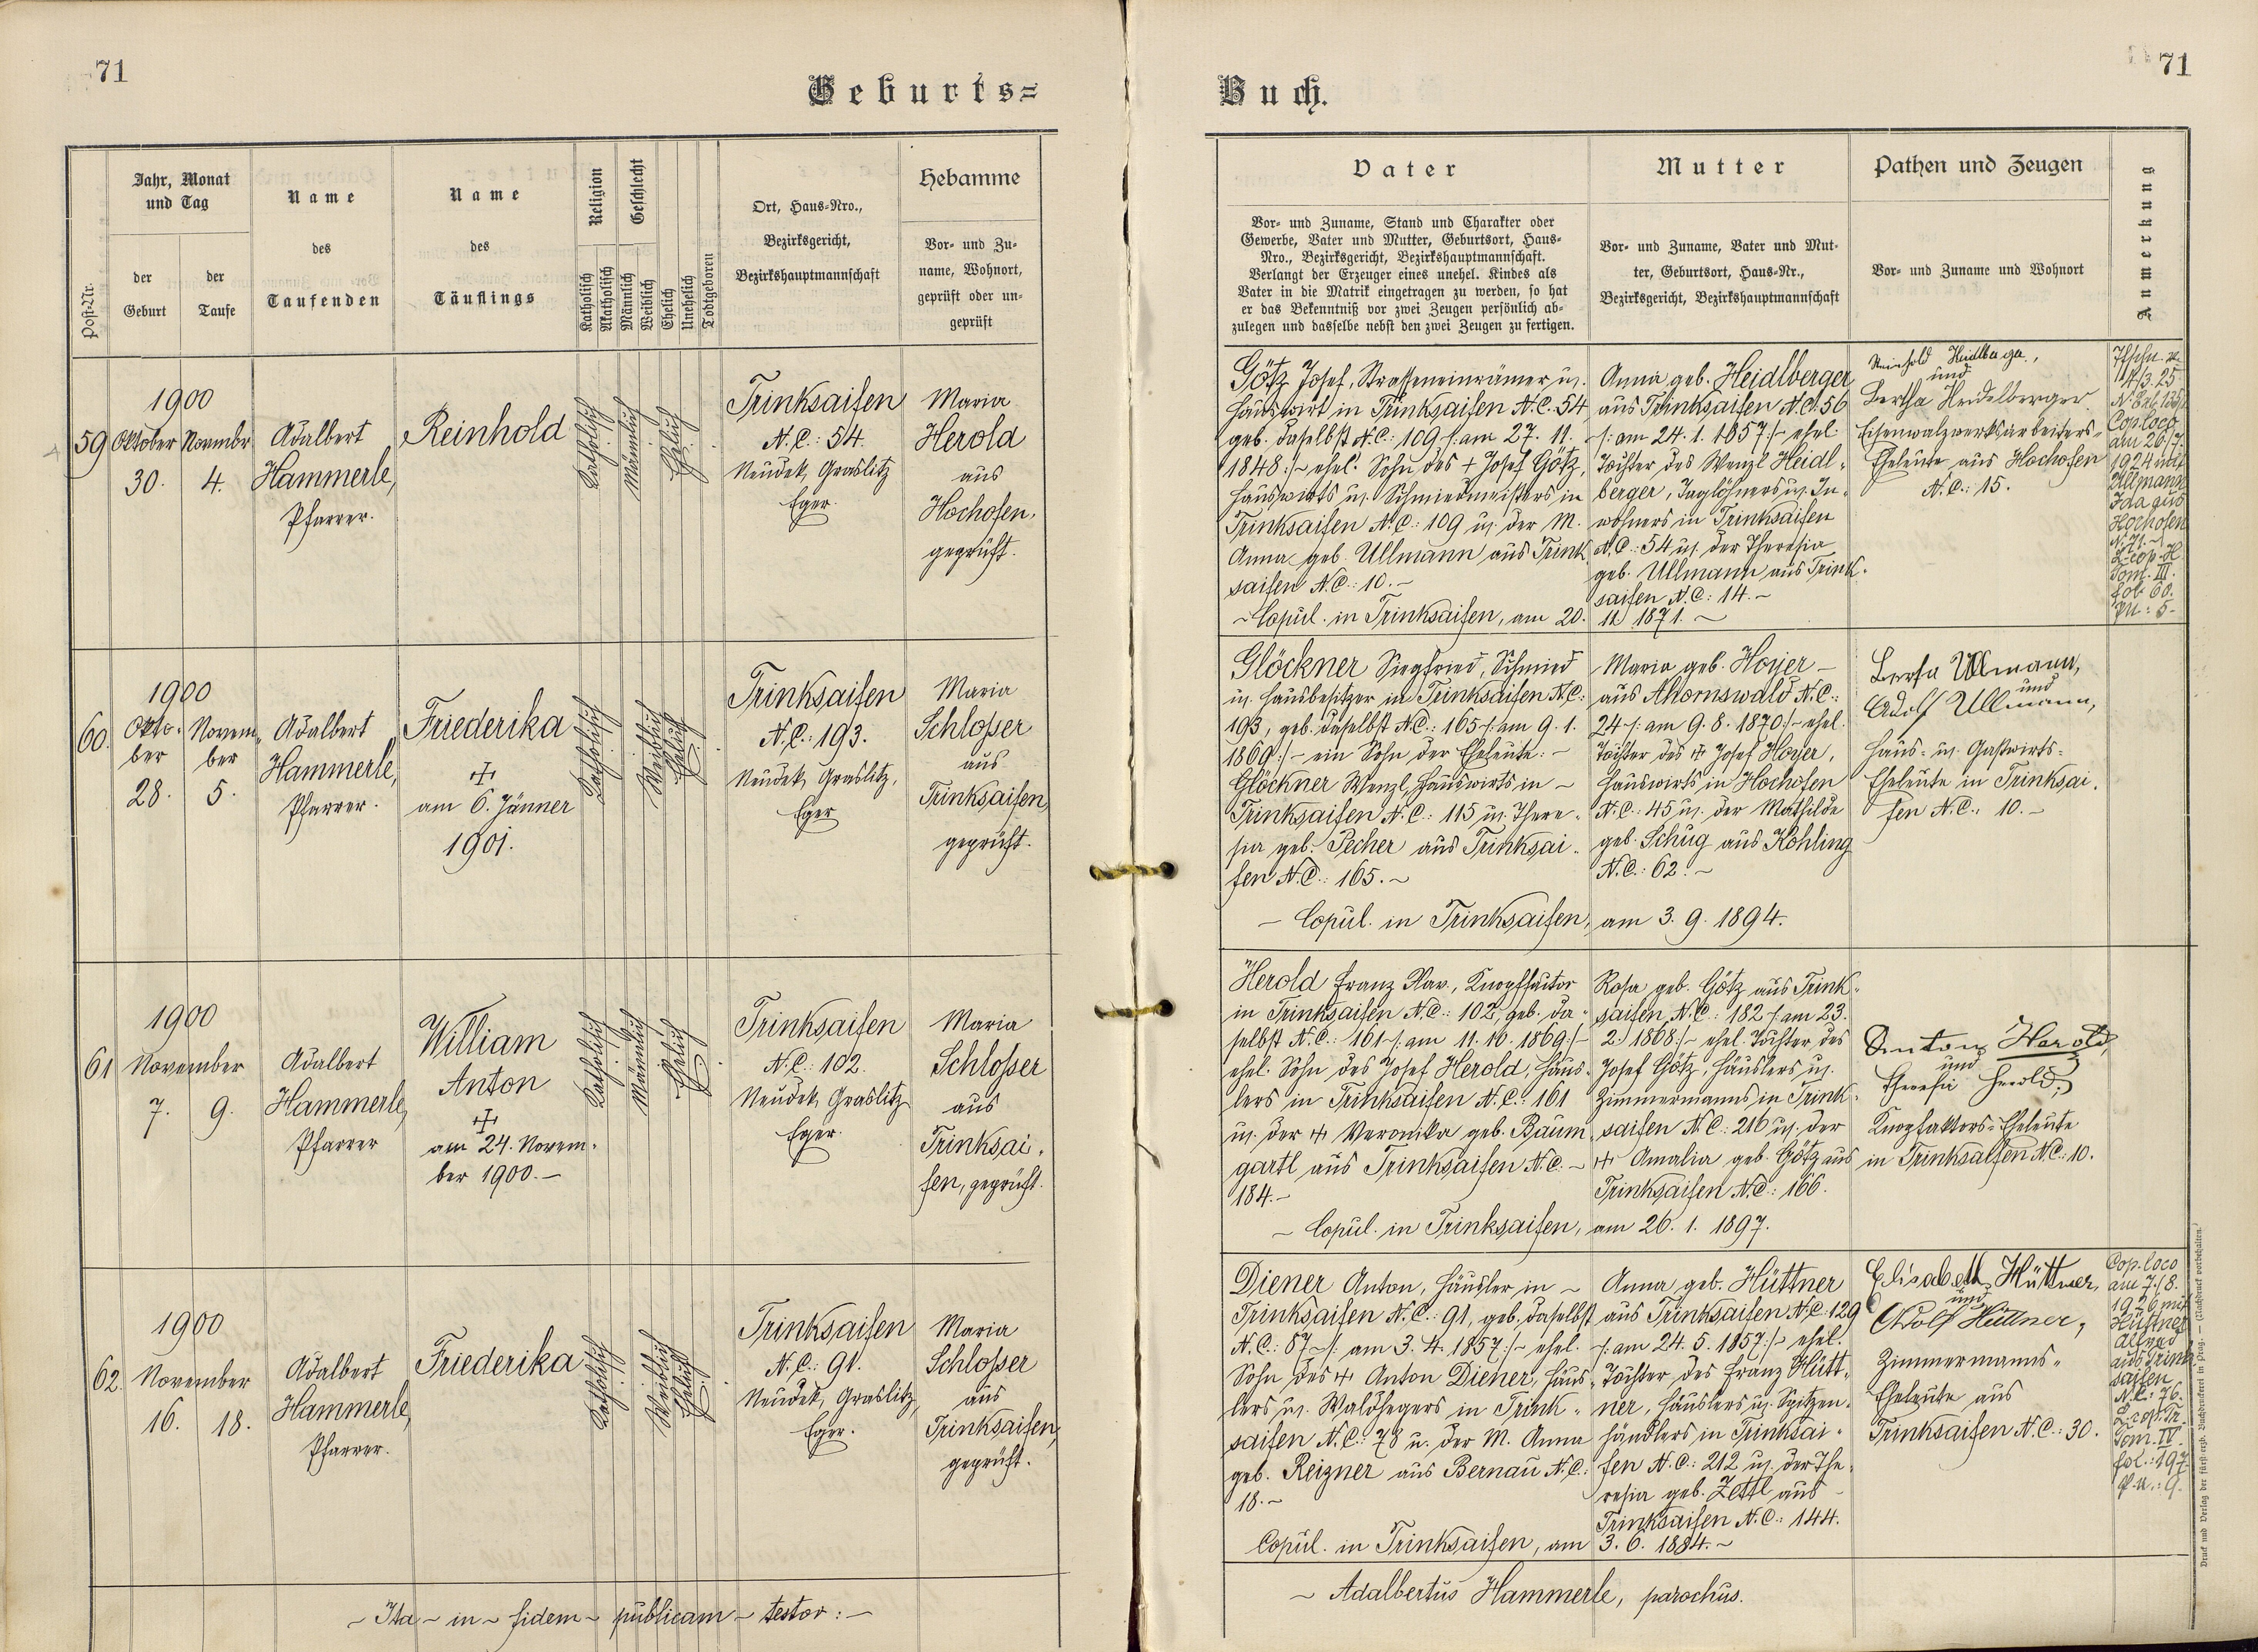 71
Geburts=
Jahr, Monat
und Tag
der
Geburt
der
Taufe
Post-Nr.
Name
des
Taufenden
Name
des
Täuflings
Religion
Katholisch
Akatholisch
Geschlecht
Männlich
Weiblich
Ehelich
Unehelich
Todtgeboren
Ort, Haus-Nro.,
Bezirksgericht,
Bezirkshauptmannschaft
Hebamme
Vor- und Zu-
name, Wohnort,
geprüft oder un-
geprüft
59
1900
Oktober
30.
Novembr
4.
Adalbert
Hammerle,
Pfarrer.
Reinhold
Katholisch
Männlich
Ehelich
Trinksaifen
N.C.: 54.
Neudek, Graslitz
Eger.
Maria
Herold
aus
Hochofen,
geprüft.
60.
1900
Okto-
ber
28.
Novem-
ber
5.
Adalbert
Hammerle,
Pfarrer.
Friederika
am 6. Jänner
1901.
Katholisch
Weiblich
Ehelich
Trinksaifen
N.C.: 193.
Neudek, Graslitz,
Eger
Maria
Schlosser
aus
Trinksaifen,
geprüft.
61
1900
November
7. 9.
Adalbert
Hammerle,
Pfarrer
William
Anton
am 24. Novem-
ber 1900.-
Katholisch
Männlich
Ehelich
Trinksaifen
N.C.: 102.
Neudek, Graslitz
Eger.
Maria
Schlosser
aus
Trinksai-
fen, geprüft.
62.
1900
November
16. 18.
Adalbert
Hammerle,
Pfarrer.
Friederika
Katholisch
Weiblich
Ehelich
Trinksaifen
N.C.: 91.
Neudek, Graslitz,
Eger.
Maria
Schlosser
aus
Trinksaifen,
geprüft.
~ Ita ~ in ~ fidem ~ publicam ~ testor: ~
71
Buch.
Vater
Vor- und Zuname, Stand und Charakter oder
Gewerbe, Vater und Mutter, Geburtsort, Haus-
Nro., Bezirksgericht, Bezirkshauptmannschaft.
Verlangt der Erzeuger eines unehel. Kindes als
Vater in die Matrik eingetragen zu werden, so hat
er das Bekenntniß vor zwei Zeugen persönlich ab-
zulegen und dasselbe nebst den zwei Zeugen zu fertigen.
Mutter
Vor- und Zuname, Vater und Mut-
ter, Geburtsort, Haus-Nr.,
Bezirksgericht, Bezirkshauptmannschaft
Pathen und Zeugen
Vor- und Zuname und Wohnort
Anmerkung
Götz Josef, Strasseneinrämer u.
Hauswirt in Trinksaifen N.C. 54
geb. daselbst N.C.: 109 /: am 27. 11.
1848 :/~ ehel. Sohn des + Josef Götz,
Hauswirts u. Schmiedmeisters in
Trinksaifen N.C.: 109 u. der M.
Anna geb. Ullmann aus Trink
saifen N.C.: 10.-
~ Copul. in Trinksaifen, am 20.
Anna geb. Heidlberger
aus Trinksaifen N.C. 56
/: am 24. 1. 1857 :/~ ehel
Tochter des Wenzl Heidl-
berger, Taglöhners u. In-
wohners in Trinksaifen
N.C.: 54 u. der Theresia
geb. Ullmann aus Trink-
saifen N.C.: 14.-
11 1871. ~
Reinhold
und
Bertha Heidelberger
Eisenwalzwerksarbeiters-
Eheleute aus Hochofen
N.C.: 15.
14/3. 25
Cop. loco
am 26/7.
1924 mit
Ullmann
Ida aus
Hochofen
Tom. III.
fol. 60.
Glöckner Siegfried, Schmied
u. Hausbesitzer in Trinksaifen N.C.:
193, geb. daselbst N.C.: 165 /: am 9. 1.
1869 :/~ ein Sohn der Eheleute: ~
Glöckner Wenzl, Hauswirts in ~
Trinksaifen N.C.: 115 u. There-
sia geb. Pecher aus Trinksai-
fen N.C.: 165.~
~ Copul. in Trinksaifen,
Maria geb. Hoyer ~
aus Ahornswald N.C.:
24 /: am 9. 8. 1870 :/~ ehel.
Tochter des + Josef Hoyer,
Hauswirts in Hochofen
N.C.: 45 u. der Mathilde
geb. Schug aus Kohling
N.C.: 62. ~
am 3. 9. 1894.
Berta Ullmann,
und
Adolf Ullmann,
Haus- u. Gastwirts-
Eheleute in Trinksai-
fen N.C.: 10.-
Herold Franz Xav., Knopffaktor
in Trinksaifen N.C.: 102, geb. da-
selbst N.C.: 161 /: am 11. 10. 1869 :/~
ehel. Sohn des Josef Herold, Häus-
lers in Trinksaifen N.C.: 161
u. der + Veronika geb. Baum
gartl aus Trinksaifen N.C. ~
184.-
~ Copul. in Trinksaifen,
Rosa geb. Götz aus Trink-
saifen, N.C.: 182 /: am 23.
2. 1868 :/~ ehel. Tochter des
Josef Götz, Häuslers u.
Zimmermanns in Trink-
saifen N.C.: 216 u. der
+ Amalia geb. Götz aus
Trinksaifen N.C.: 166.
am 26. 1. 1897.
Anton Herold,
und
Theresia Herold,
Knopfaktors-Eheleute
in Trinksaifen N.C.: 10.
Diener Anton, Häusler in ~
Trinksaifen N.C.: 91, geb. daselbst
N.C.: 87 ~/: am 3. 4. 1857 :/~ ehel.
Sohn des + Anton Diener, Häus-
lers u. Waldhegers in Trink-
saifen N.C.: 78 u. der M. Anna
geb. Reizner aus Bernau N.C.:
18.~
Copul. in Trinksaifen, am
Anna geb. Hüttner
aus Trinksaifen N.C.: 129
/: am 24. 5. 1857 :/~ ehel.
Tochter des Franz Hütt-
ner, Häuslers u. Spitzen-
händlers in Trinksai-
fen N.C.: 212 u. der The-
resia geb. Zettl aus
Trinksaifen N.C.: 144.
3. 6. 1884.~
Elisabeth Hüttner,
und
Adolf Hüttner,
Zimmermanns-
Eheleute aus
Trinksaifen N.C.: 30.
Cop. loco
am 7./8.
1926 mit
Hüttner
Alfred
aus Trink
saifen
N.C.: 76.
Tom. IV.
fol.: 197
~ Adalbertus Hammerle, parochus.
Druck und Verlag der fürst-erzb. Buchdruckerei in Prag. — (Nachdruck vorbehalten.)